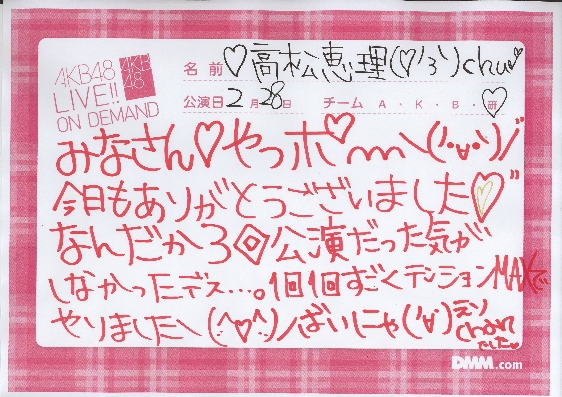 AKB48
LIVE!!
ON DEMAND
AKB
48
名前 ♡高松恵理(♡'3')chu♡
公演日 2月28日 チーム A・K・B・研
みなさん♡やっホ♡ー＼(´･∀･`)/
今日もありがとうございました♡"
なんだか3回公演だった気が
しなかったデス…。1回1回すごくテンションMAXで
やりました＼(^♡^)/ばいにゃ('∀')えり
chanでした♡
DMM.com